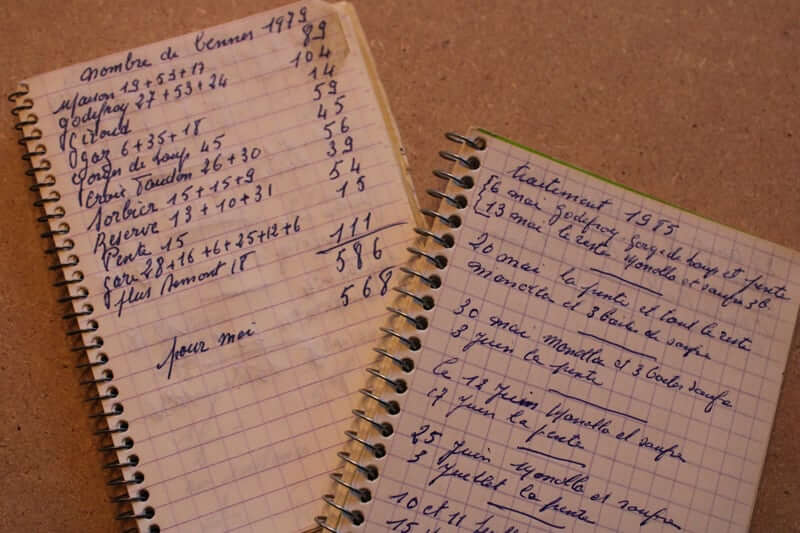 nombre de bennes 1979
Maison 19+53+17 89
godefroy 27+53+24 104
Giroud 14
gaz 6+35+18 59
gorges de loup 45 45
Croix Taudon 26+30 56
Sorbier 15+15+9 39
Reserve 13+10+31 54
Pente 15 15
gare 28+16+6+25+12+6 111
plus 18 586
568
pour moi
traitement 1985
6 mai godefroy gorge de loup et pente
13 mai le reste et soufre 3 B.
20 mai la pente et tout le reste
et 3 boites de soufre
30 mai et 3 boites soufre
3 Juin la pente
le 12 Juin et soufre
17 Juin la pente
25 Juin et soufre
3 Juillet la pente
10 et 11
15